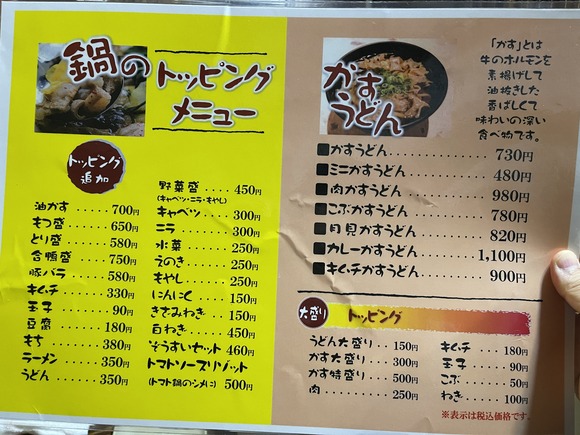 鍋の
トッピング
メニュー
トッピング
追加
油かす ...... 700円
もつ盛 ...... 650円
とり盛 ...... 580円
合鴨盛 ...... 750円
豚バラ ...... 580円
キムチ ...... 330円
玉子 ...... 90円
豆腐 ...... 180円
もち ...... 380円
ラーメン ...... 350円
うどん ...... 350円
野菜盛 .... 450円
(キャベツ・ニラ・もやし)
キャベツ ... 300円
ニラ ...... 300円
水菜 ...... 250円
えのき .... 250円
もやし .... 250円
にんにく ... 150円
きざみねぎ .. 150円
白ねぎ .... 450円
ぞうすいセット 460円
トマトソースリゾット
(トマト鍋のシメに) 500円
かす
うどん
「かす」とは
牛のホルモンを
素揚げして
油抜きした
香ばしくて
味わいの深い
食べ物です。
■かすうどん ...... 730円
■ミニかすうどん ...... 480円
■肉かすうどん ...... 980円
■こぶかすうどん ...... 780円
■月見かすうどん ...... 820円
■カレーかすうどん ...... 1,100円
■キムチかすうどん ...... 900円
大盛り トッピング
うどん大盛り .. 150円
かす大盛り ... 300円
かす特盛り ... 500円
肉 ........ 250円
キムチ .... 180円
玉子 ..... 90円
こぶ ..... 50円
ねぎ ..... 100円
※表示は税込価格です。